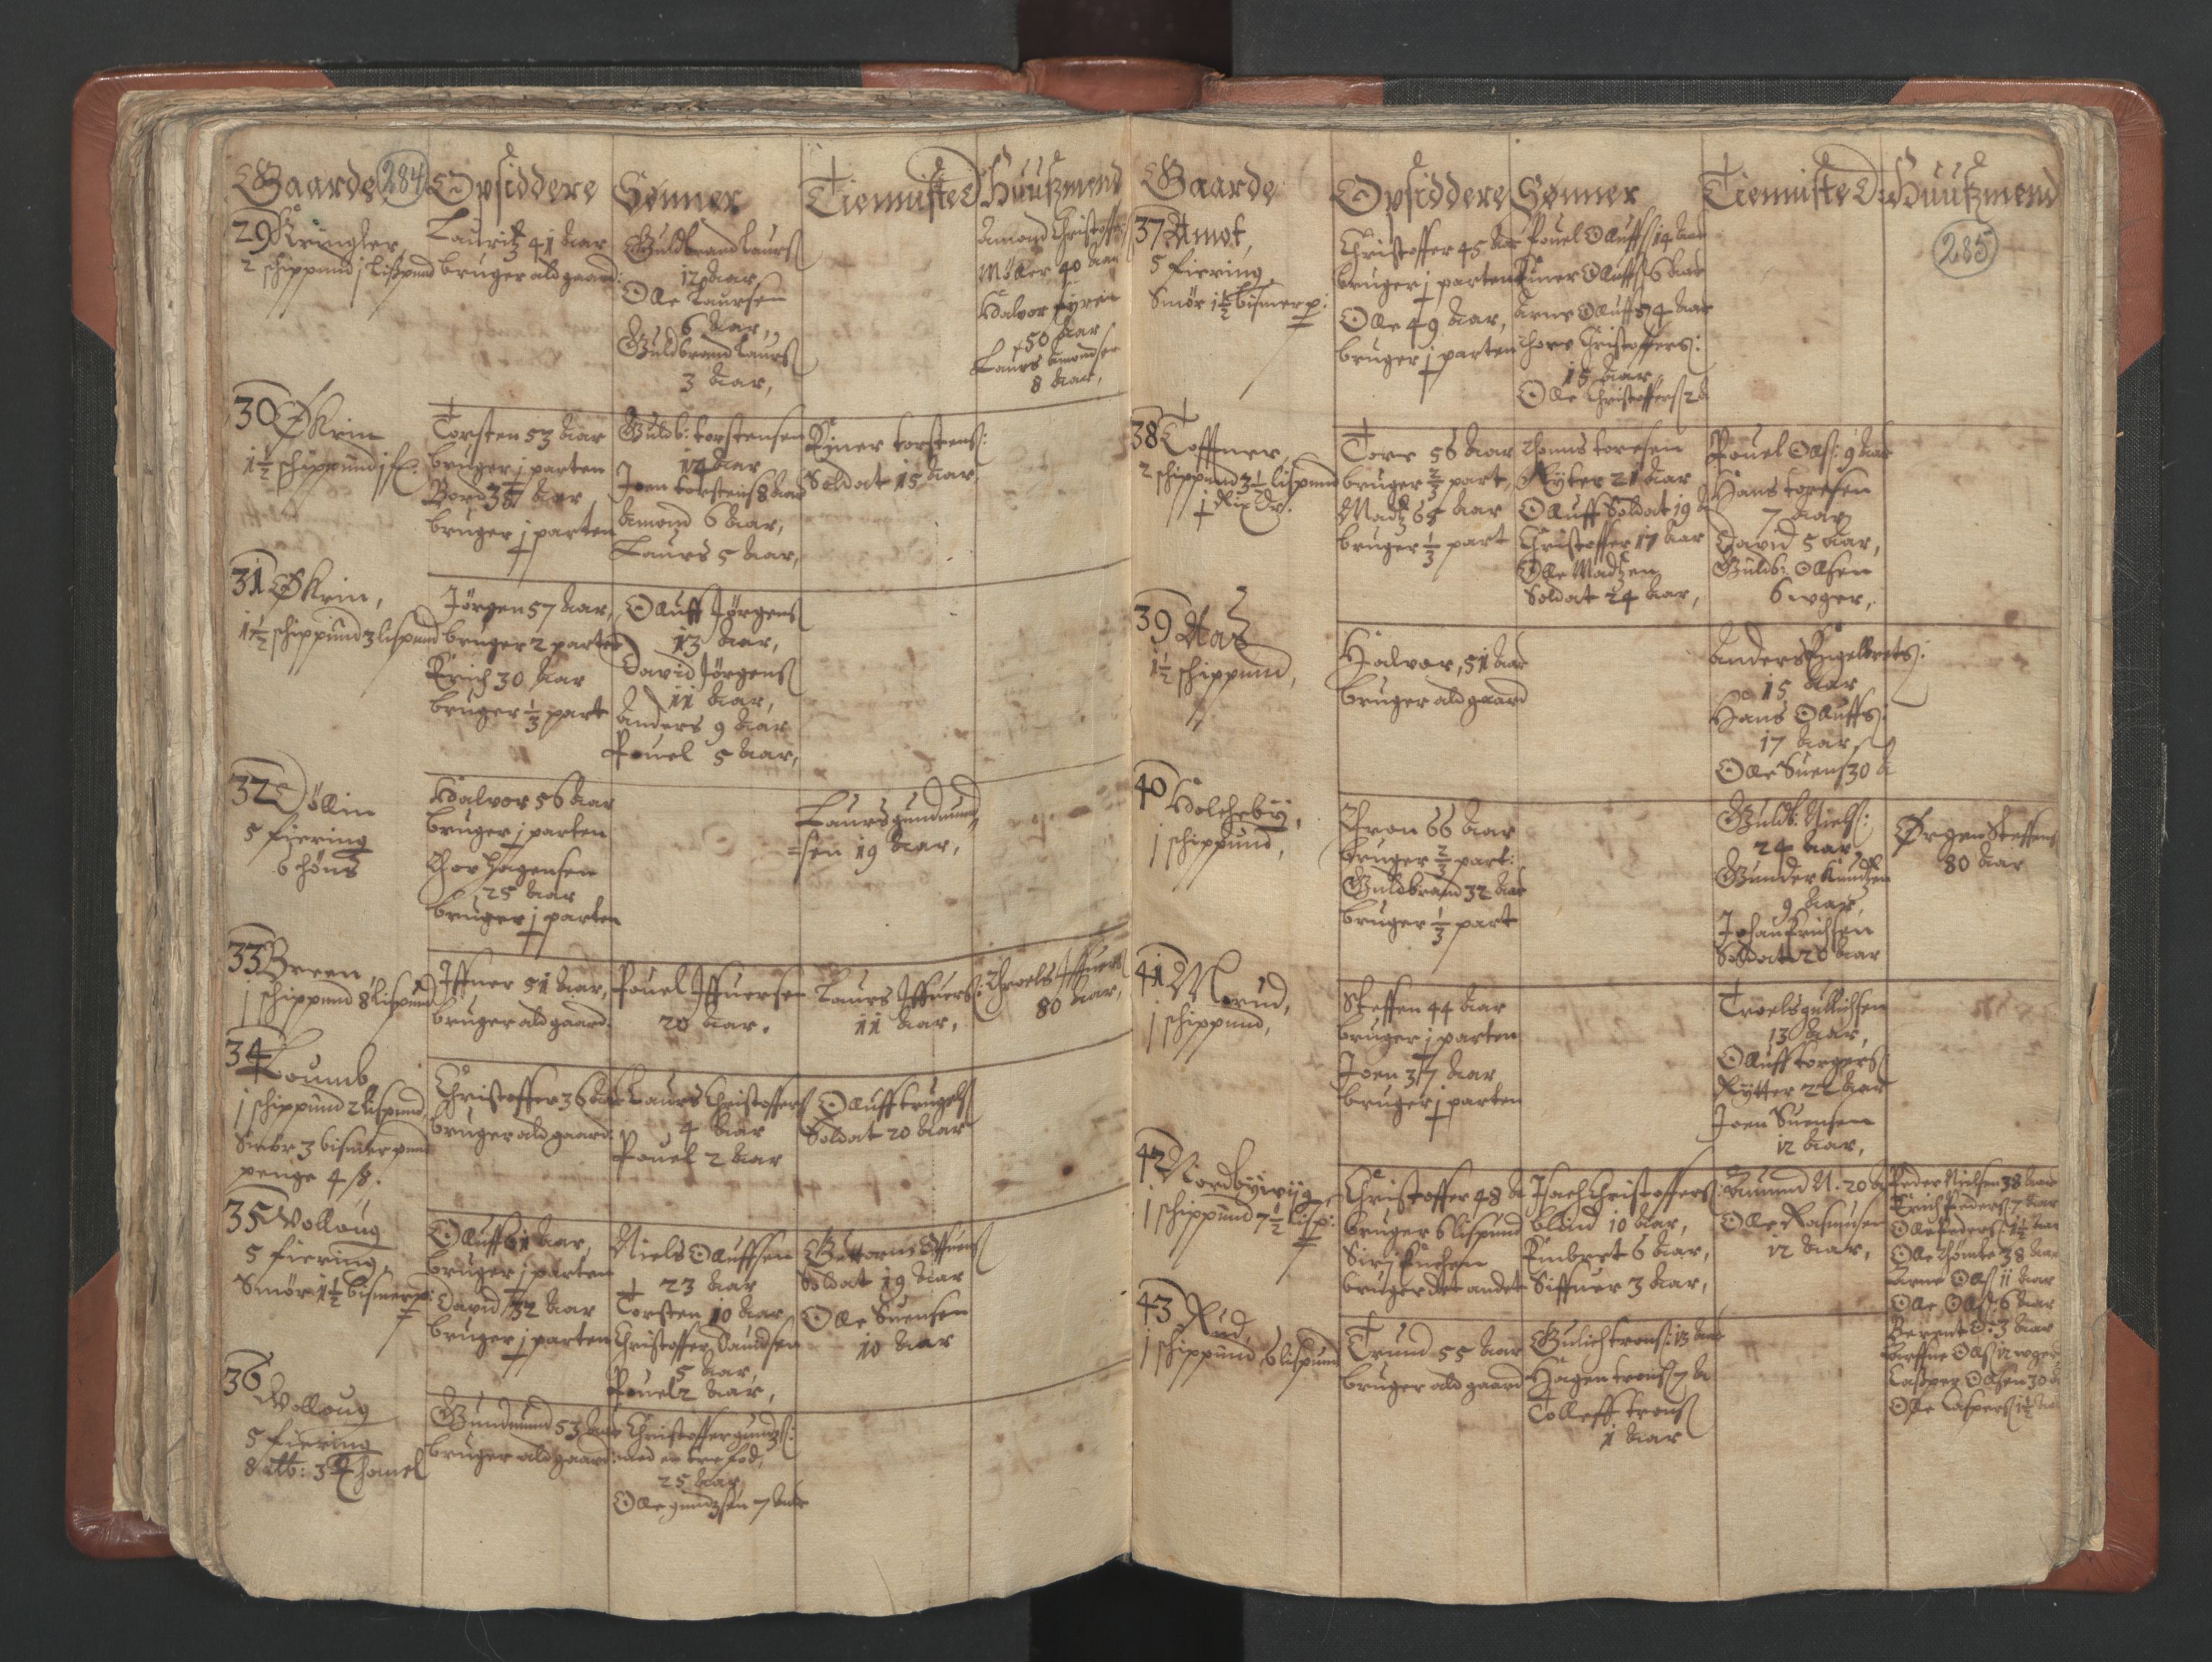 Gaarde 284 Opsiddere Sønner Tiennisted: Huußmend
29 Kringler,
2 schippund j lispund
Lauritz 41 Aar
bruger ald gaard:
Guldbrand Laurs
12 Aar
Olle Laursen
6 Aar,
Guldbrand Laurs
3 Aar,
Amond Christoff
Møller 40 Aar
Halvor
50 Aar
Laurs Amondsen
8 Aar,
30 Økrin
1½ schippund
Torsten 53 Aar
bruger ½ parten
Bord 37 Aar
bruger ½ parten
Guldb: torstensen
14 Aar
Joen torstens 8 Aar
Amond 6 Aar,
Laurs 5 Aar,
Einer torstens:
Soldat 15 Aar
31 Økrin,
1½ schippund 3 lispund
Jørgen 57 Aar,
bruger 2 parter
Erich 30 Aar
bruger ⅓ part
Oluff Jørgens
13 Aar,
David Jørgens
11 Aar,
Anders 9 Aar
Pouel 5 Aar,
32 Døllin
5 fiering
6 schons
Halvor 56 Aar
bruger ½ parten
Thor Hagensen
25 Aar
bruger ½ parten
Laurs gundmund
=sen 19 Aar,
33 Breen,
j schippund 8 lispund
Iffuer 51 Aar,
bruger ald gaard:
Pouel Iffuersen
20 Aar.
Laurs Iffuers:
11 Aar,
Throels Iffuers
80 Aar,
34 Loumb
j schippund 2 lispund
Smør 3 bismerpund
penge 4 ß.
Christoffer 36 Aar
bruger ald gaard:
Laurs Christoffers
4 Aar
Pouel 2 Aar
Oluff trugels
Soldat 20 Aar
35 Wolloug
5 fiering,
Smør 1½ bismerp:
Oluff 61 Aar,
bruger ½ parten
David 32 Aar
bruger ½ parten
Niels Oluffsen
23 Aar
Torsten 10 Aar
Christoffer Dauidsen
5 Aar,
Pouel 2 Aar,
Guttorm
Soldat 19 Aar
Olle Suensen
10 Aar
36 Wolloug
5 fiering
Gundmund 53 Aar
bruger ald gaard:
Christoffer gunds:
med en tre fod,
25 Aar
Olle gundsen 7 Aar
Gaarde Opsiddere Sønner Tiennisted: Huußmend
285
37 Amot,
5 fiering,
Smør 1½ bismerp:
Christoffer 45 Aar
bruger ½ parten
Olle 49 Aar,
bruger ½ parten
Pouel Oluffs 14 Aar
Einer Oluffs 6 Aar
Arne Oluffs 4 Aar
Thore Christoffers:
15 Aar
Olle Christoffers 2 A
38 Toffner,
2 schippund 3½ lispund
½ Rix Dr.
Tore 56 Aar
bruger ⅔ part,
Madtz 65 Aar
bruger ⅓ part
Thomis toresen
Ryter 21 Aar
Oluff Soldat 19 A
Christoffer 17 Aar
Olle Madtzen
Soldat 24 Aar,
Pouel Ols: 9 Aar
Hans toresen
7 Aar
David 5 Aar,
Guldb: Olsen
6 wger,
39 Aas
1½ schippund,
Halvor, 51 Aar
bruger ald gaard
Anders Engelbrets:
15 Aar
Hans Oluffs:
17 Aar,
Olle Suens 30 A
40 Holcheby,
j schippund,
Thron 66 Aar
bruger ⅔ part:
Guldbrand 32 Aar
bruger ⅓ part
Guldb: Niels:
24 Aar,
Gunder Knudtzen
9 Aar,
Johan Erichsen
Soldat 20 Aar
Ørgen Steffens
80 Aar
41 Morud,
j schippund,
Steffen 44 Aar
bruger ½ parten
Joen 37 Aar
bruger ½ parten
Troels gullichsen
13 Aar,
Oluff torgers
Rytter 22 Aar
Joen Suensen
12 Aar,
42 Nordbywiig
j schippund 7½ lisp:
Christoffer 48 A
bruger 6 lispund
Siri Enchen
bruger det andet
Isach Christoffers:
blind 10 Aar,
Embret 6 Aar,
Siffuer 3 Aar,
Amund N: 20 A
Olle Rasmusen
12 Aar,
Peder Nielsen 38 Aar
Erich Peders 7 Aar
Olle Peders 1½ Aar
Olle Thomte 38 Aar
Arne Ols 11 Aar
Olle Ols 6 Aar
Berent O: 3 Aar
Ols 12 wger
Casper Olsen 30 A
Olle Caspers 1½ A
43 Rud,
j schippund, 6 lispund
Trund 55 Aar
bruger ald gaard
Gulich trons: 13 Aar
Hagen trons 7 A
Tolleff trons
1 Aar